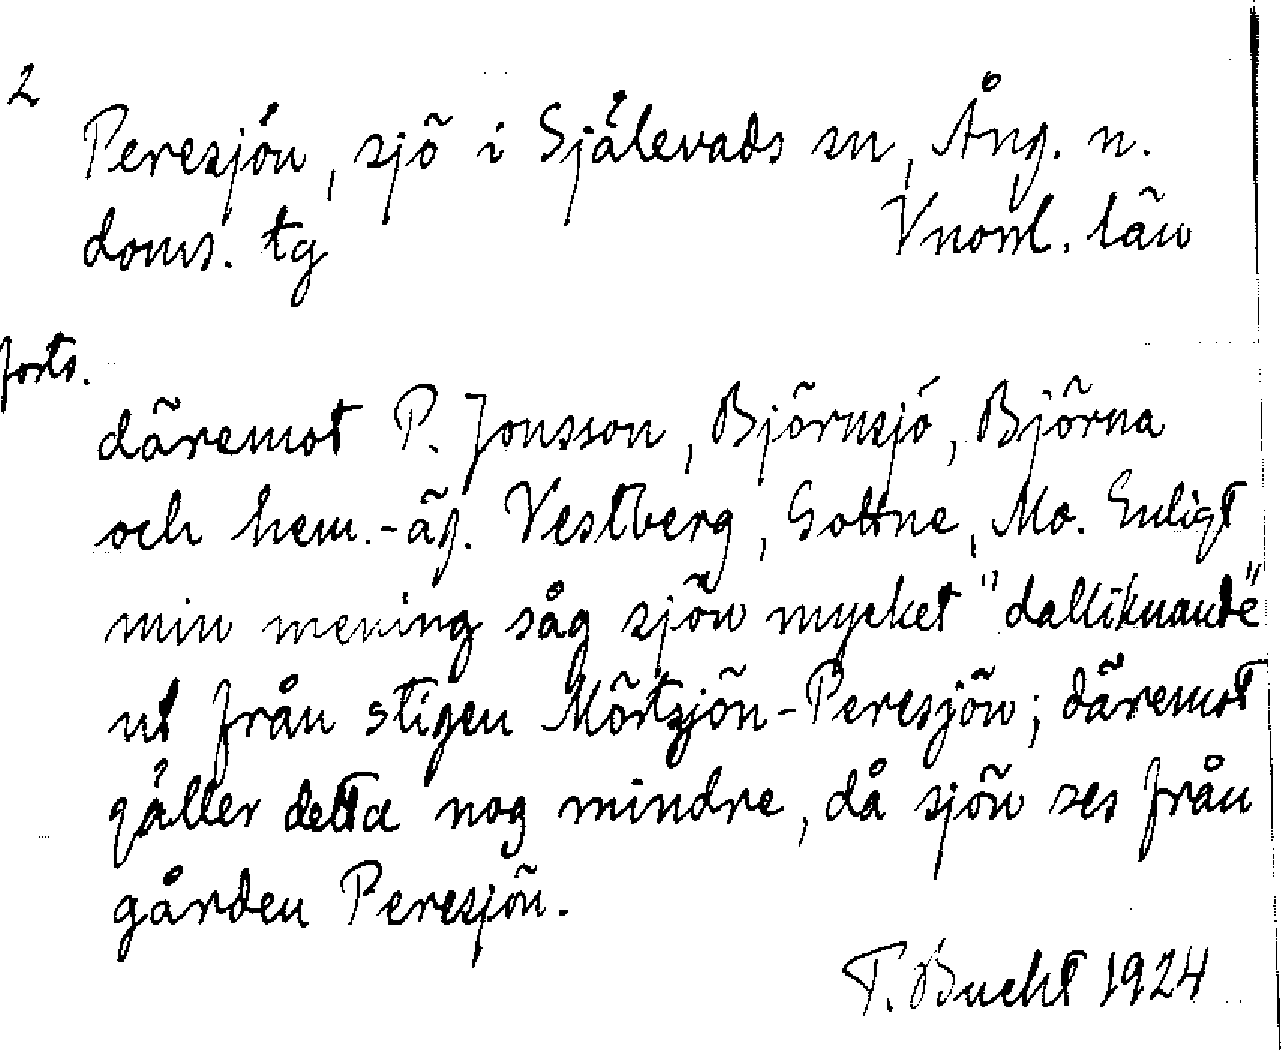 2
Peresjön, sjö i Själevads sn, Ång. n.
doms. tg Vnorrl. län
forts.
däremot P. Jonsson, Björnsjö, Björna
och hem.-äg. Vestberg, Gottne, Mo. Enligt
min mening såg sjön mycket "dalliknande"
ut från stigen Mörtsjön-Peresjön; däremot
gäller detta nog mindre, då sjön ses från
gården Peresjön.
T. Bucht 1924